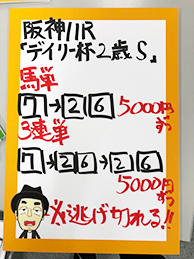 阪神11R
『デイリー杯2歳S』
馬単
7→26 5000円ずつ
3連単
7→26→26
5000円ずつ
必逃げ切れる!!